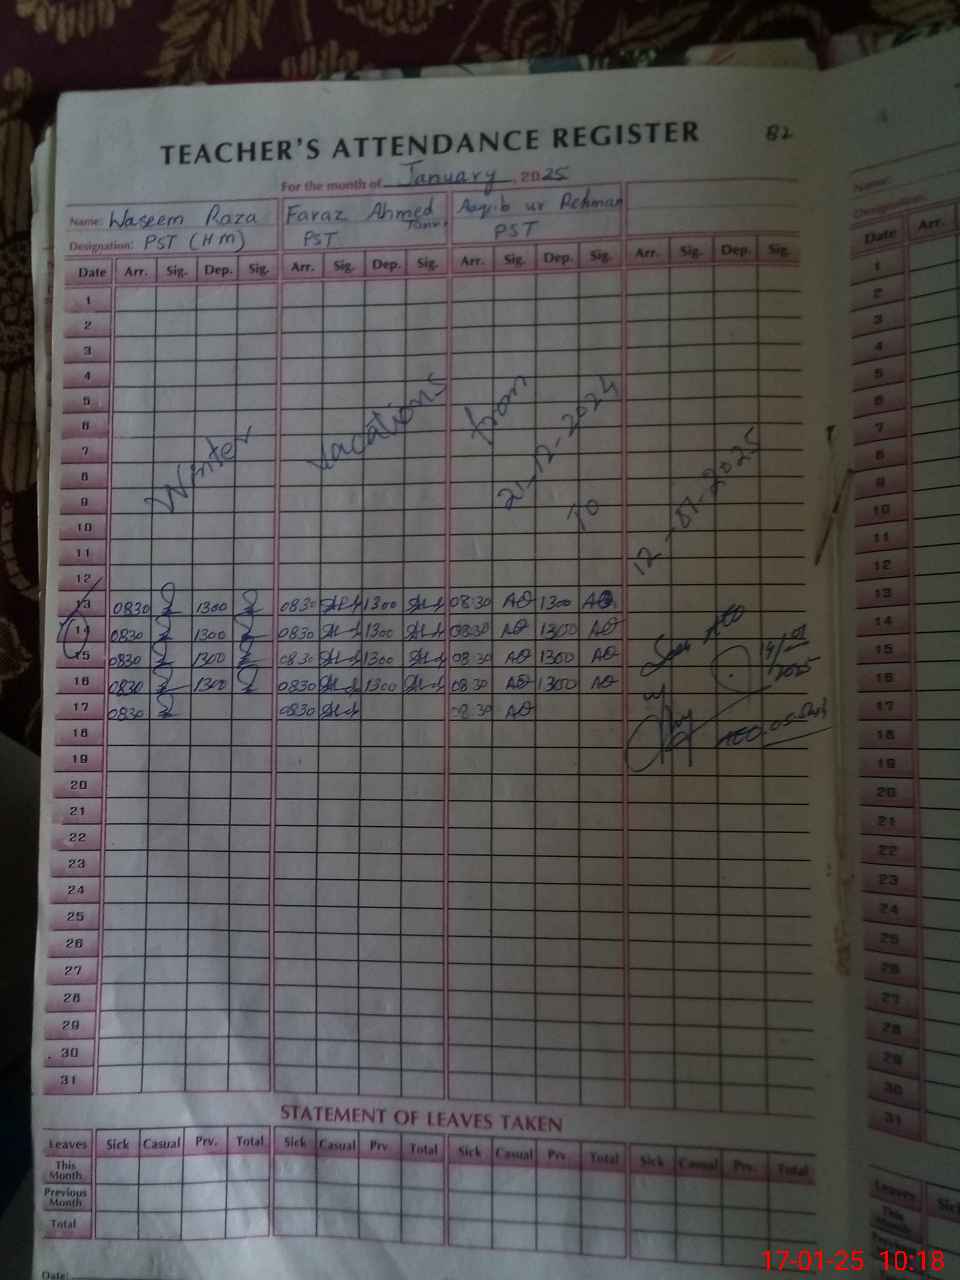 TEACHER'S ATTENDANCE REGISTER 82
For the month of January, 2025
Name: Waseem Raza Faraz Ahmed Aaqib ur Rehman
Designation: PST (HM) PST PST
Date Arr. Sig. Dep. Sig. Arr. Sig. Dep. Sig. Arr. Sig. Dep. Sig. Arr. Sig. Dep. Sig.
1
2
3
4
5
6
7
8
9
10
11
12
Winter vacations from 21-12-2024 To 12-01-2025
13 0830 1300 0830 1300 08:30 AQ 1300 AQ
14 0830 1300 0830 1300 08:30 AQ 1300 AQ
15 0830 1300 0830 1300 08:30 AQ 1300 AQ
16 0830 1300 0830 1300 08:30 AQ 1300 AQ
17 0830 0830 08:30 AQ
14/01/2025
18
19
20
21
22
23
24
25
26
27
28
29
30
31
STATEMENT OF LEAVES TAKEN
Leaves Sick Casual Prv. Total Sick Casual Prv Total Sick Casual Prv. Total Sick Casual Prv. Total
This Month
Previous Month
Total
Date:
Name:
Designation:
Date Arr.
1
2
3
4
5
6
7
8
9
10
11
12
13
14
15
16
17
18
19
20
21
22
23
24
25
26
27
28
29
30
31
Leaves Sick
This Month
17-01-25 10:18